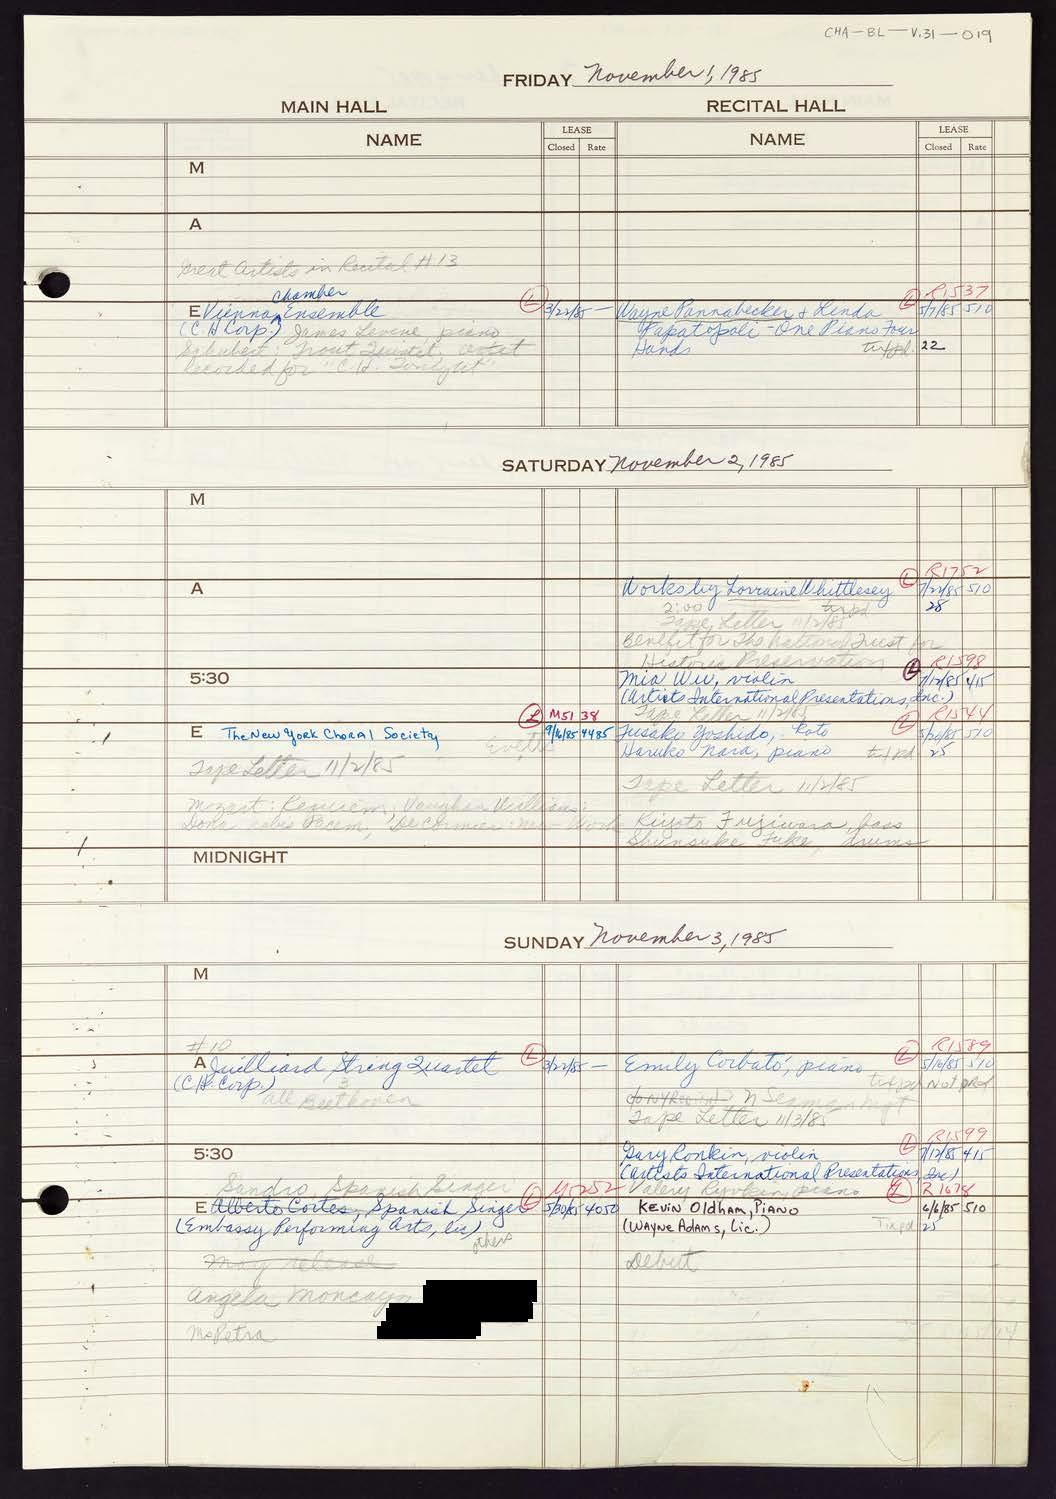 CHA-BL-V.31-019
FRIDAY November 1, 1985
MAIN HALL RECITAL HALL
NAME LEASE Closed Rate NAME LEASE Closed Rate
M
A
Great Artists in Recital #13
chamber R1537
E Vienna Ensemble L 3/22/85 — Wayne Pannabecker & Linda L 5/7/85 510
(C.H. Corp.) James Levine piano Papatopoli - One Piano Four
Schubert: Trout Quintet, octet Hands 22
Recorded for "C.H. Tonight"
SATURDAY November 2, 1985
M
R1752
A Works by Lorraine Whittlesey L 7/22/85 510
2:00 28
Tape Letter 11/2/85
Benefit for The National Trust for
Historic Preservation R1598
5:30 Mia Wu, violin L 7/12/85 415
(Artists International Presentations, Inc.)
L M51 38 Tape Letter 11/2/85 R1544
E The New York Choral Society 9/16/85 4485 Fusako Yoshido, - Koto L 5/20/85 510
Evette Haruko Nara, piano 25
Tape Letter 11/2/85 Tape Letter 11/2/85
Mozart: Requiem; Vaughan Williams:
Dona nobis Pacem; DeCormier: New Work Kiyoto Fujiwara, bass
Shunsuke Fuke, drums
MIDNIGHT
SUNDAY November 3, 1985
M
#10 R1589
A Juilliard String Quartet L 3/22/85 — Emily Corbató, piano L 5/16/85 510
(C.H. Corp.) 3 Not prof
all Beethoven N Seaman mgt
Tape Letter 11/3/85
R1599
5:30 Gary Ronkin, violin L 7/12/85 415
(Artists International Presentations, Inc)
Sandro Spanish Singer Valery piano
E Alberto Cortes, Spanish Singer L 5/30/85 4050 KEVIN Oldham, PIANO L R1678 6/6/85 510
(Embassy Performing Arts, lic) (WAYNE Adams, Lic.) Tixpd 25
others
may release Debut
Angela Moncayo
Ms Petra